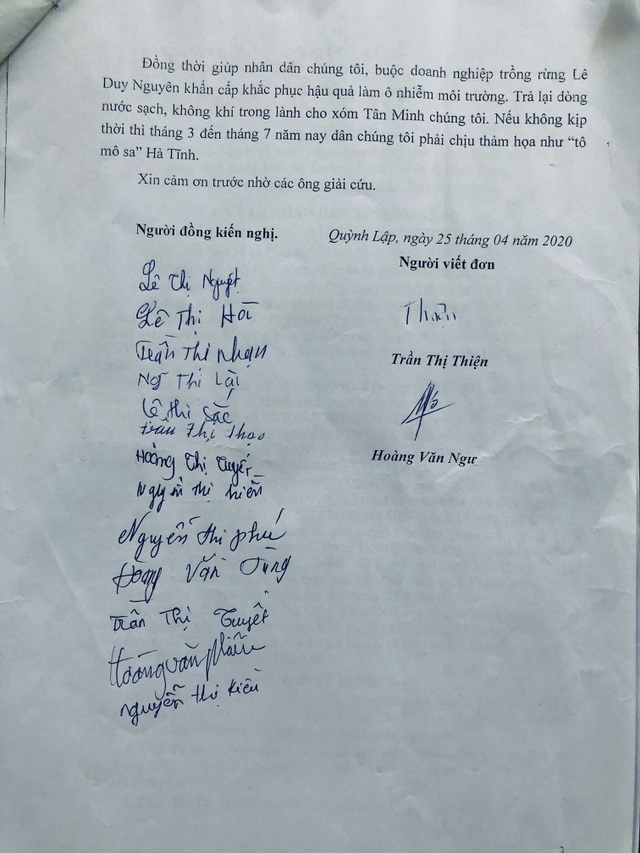 Đồng thời giúp nhân dân chúng tôi, buộc doanh nghiệp trồng rừng Lê
Duy Nguyên khẩn cấp khắc phục hậu quả làm ô nhiễm môi trường. Trả lại dòng
nước sạch, không khí trong lành cho xóm Tân Minh chúng tôi. Nếu không kịp
thời thì tháng 3 đến tháng 7 năm nay dân chúng tôi phải chịu thảm họa như “tô
mô sa” Hà Tĩnh.
Xin cảm ơn trước nhờ các ông giải cứu.
Người đồng kiến nghị.
Lê Thị Nguyệt
Lê Thị Hòa
Trần Thị Nhạn
Ngô Thị Lài
Lê thị Sắc
Trần Thị Thạo
Hoàng Thị Tuyết
Nguyễn thị hiền
Nguyễn thị phú
Hoàng Văn Tùng
Trần Thị Tuyết
Hoàng văn
Nguyễn thị Kiều
Quỳnh Lập, ngày 25 tháng 04 năm 2020
Người viết đơn
Thiện
Trần Thị Thiện
Hoàng Văn Ngư
3